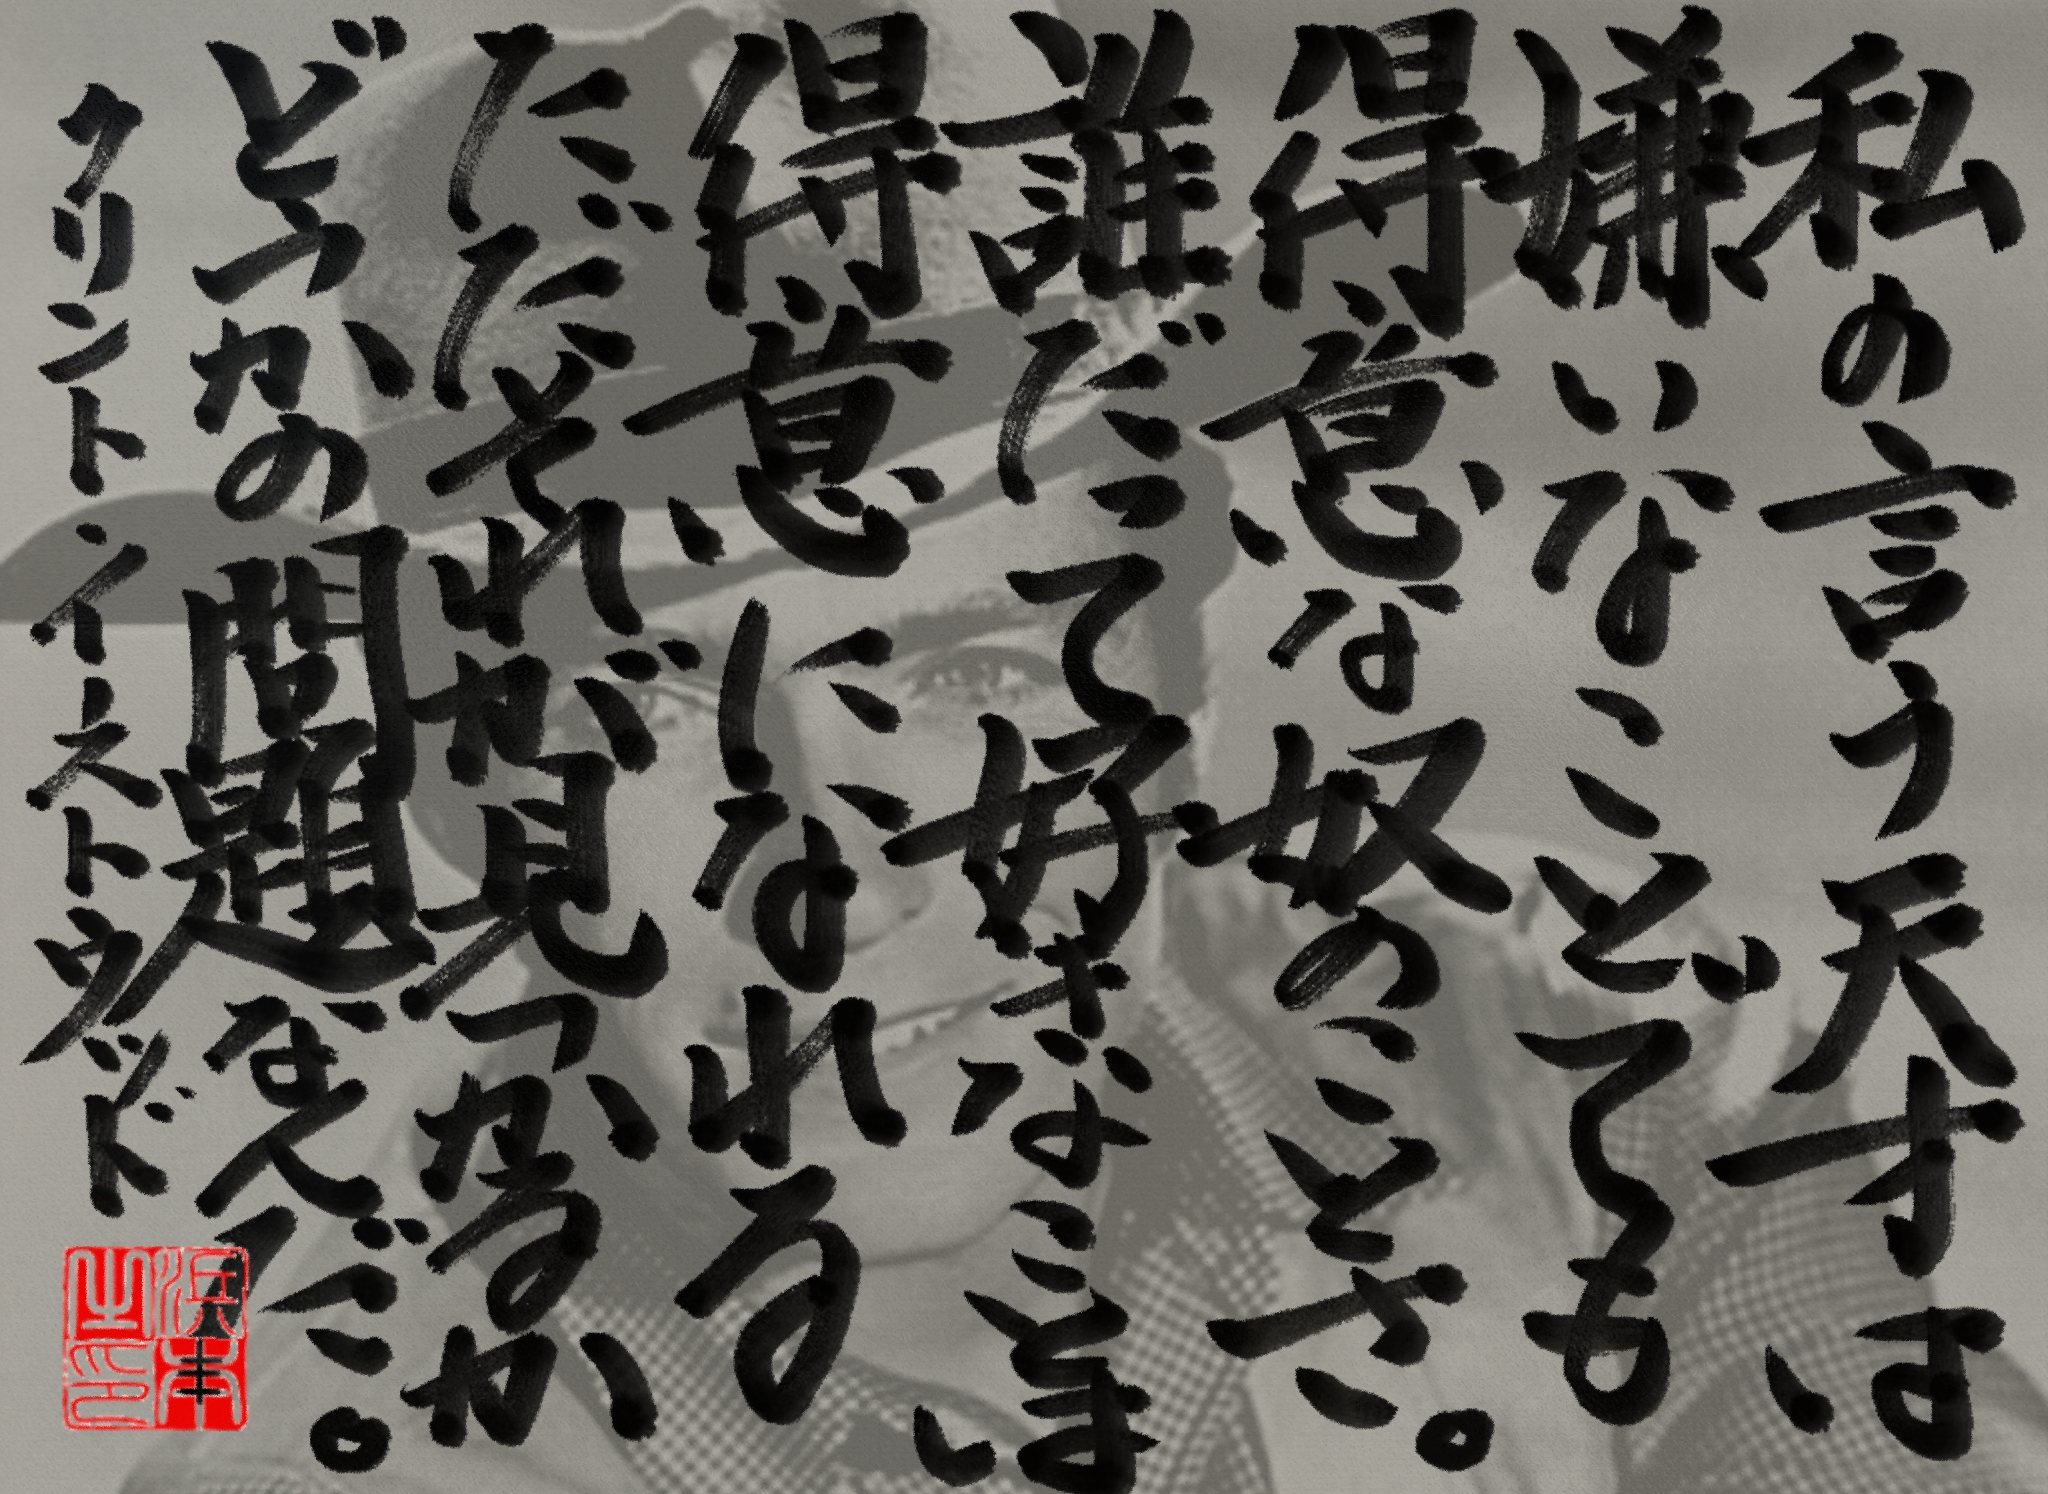 私の言う天才は、
嫌いなことでも
得意な奴のことさ。
誰だって好きなことは、
得意になれる
ただそれが見つかるか
どうかの問題なんだ。
クリント・イーストウッド
浜本之印